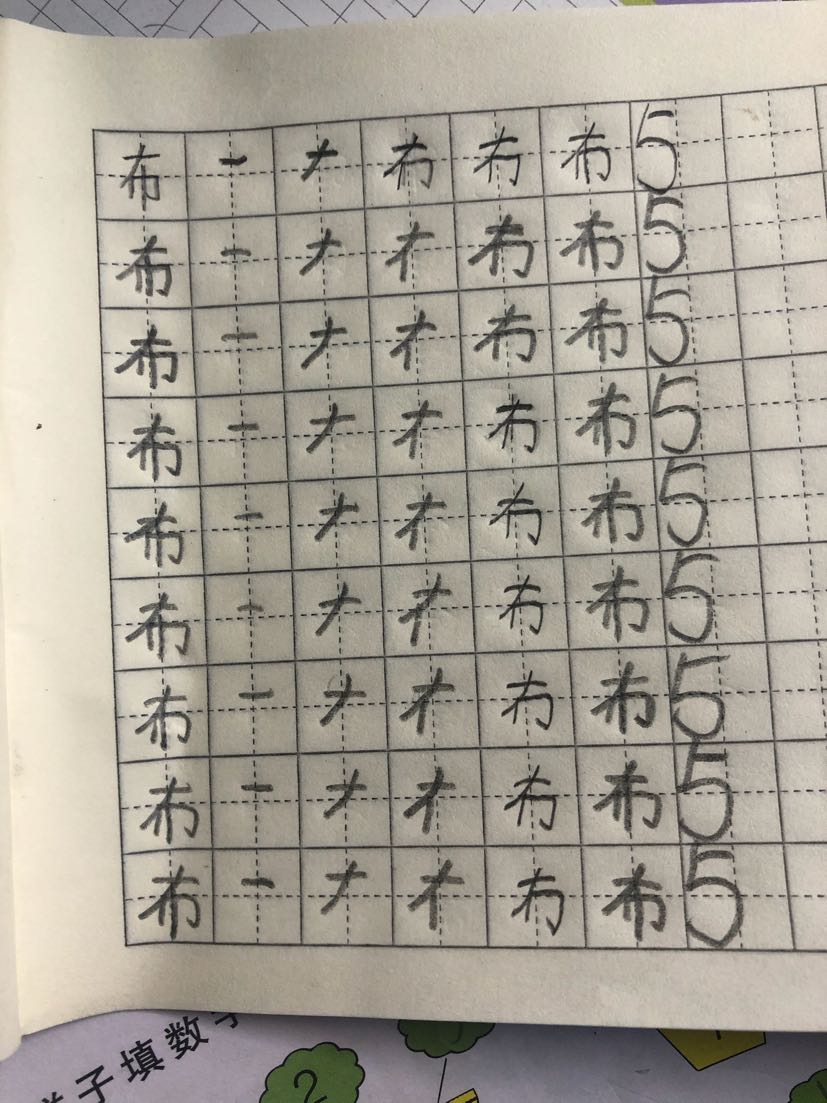 布 一 ナ 布 冇 布 5
布 一 ナ 才 布 布 5
布 一 ナ 才 冇 布 5
布 一 ナ 才 冇 布 5
布 一 ナ 才 冇 布 5
布 一 ナ 才 冇 布 5
布 一 ナ 才 冇 布 5
布 一 ナ 才 冇 布 5
布 一 ナ 才 冇 布 5
子填数
2